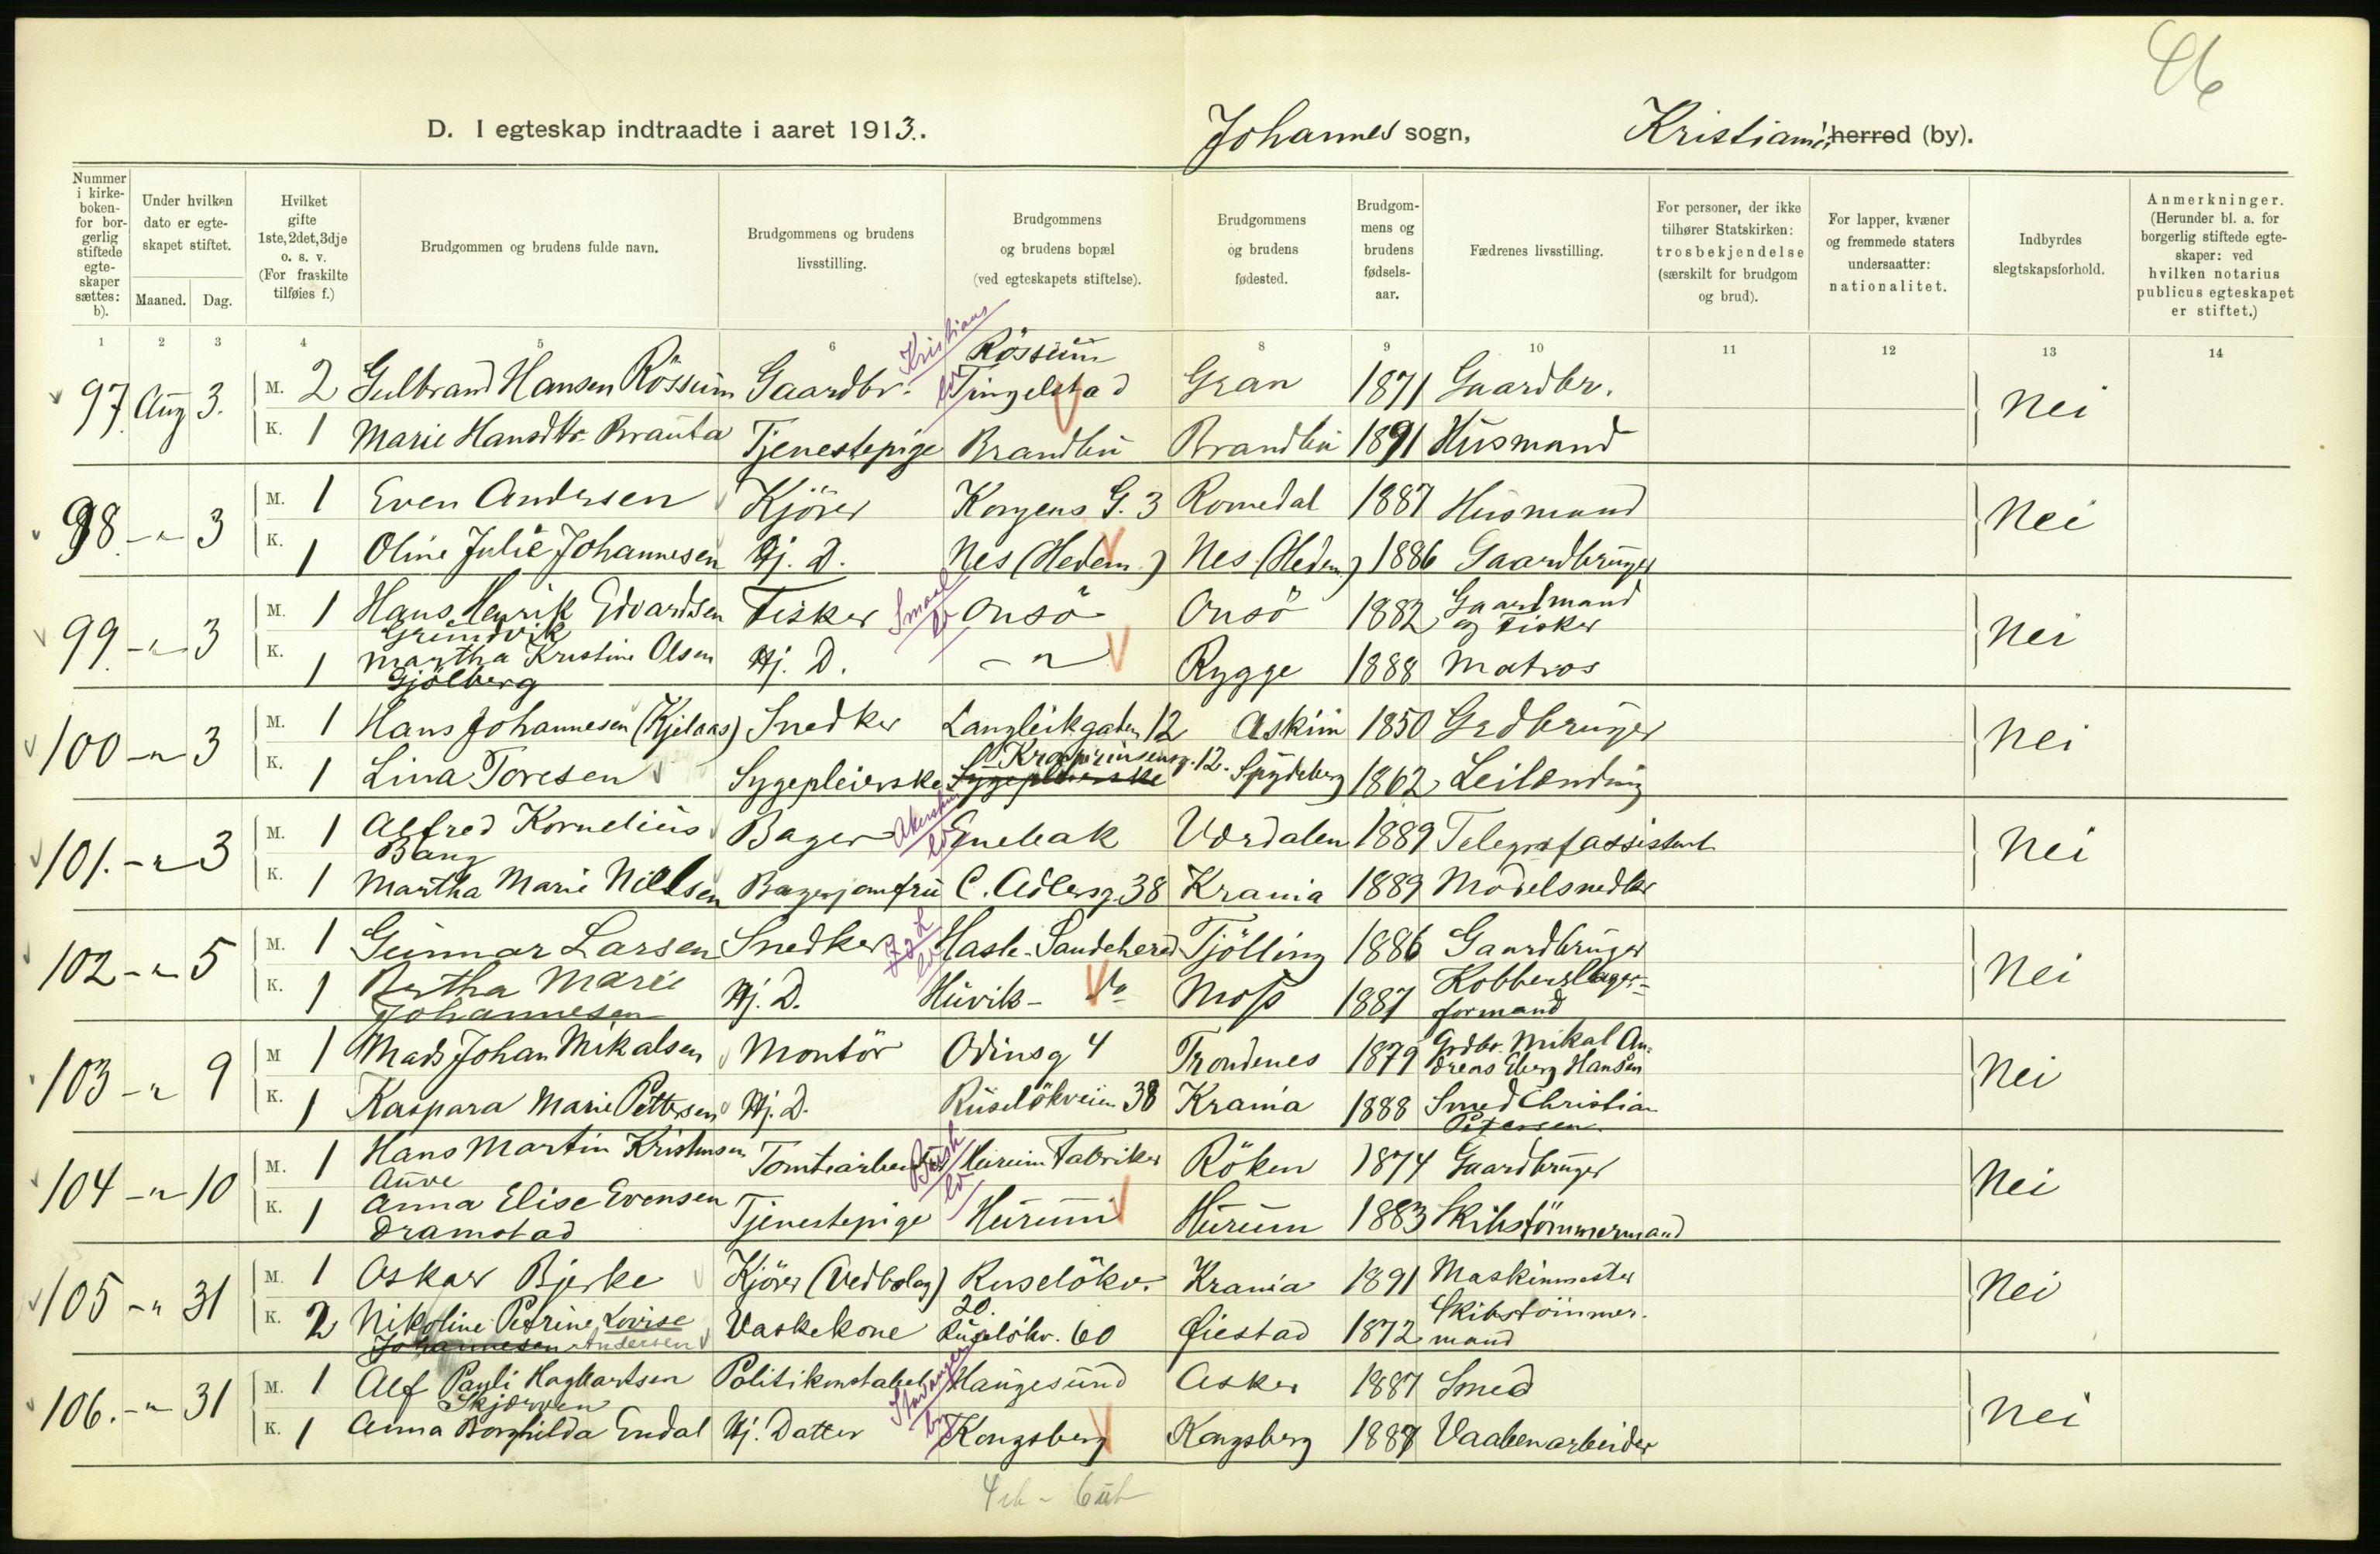 D. I egteskap indtraadte i aaret 1913. Johannes sogn, Kristiania herred (by).
Nummer i kirkeboken for borgerlig stiftede egteskaper sættes: b). Under hvilken dato er egteskapet stiftet. Maaned. Dag. Hvilket gifte 1ste, 2det, 3dje o. s. v. (For fraskilte tilføies f.) Brudgommen og brudens fulde navn. Brudgommens og brudens livsstilling. Brudgommens og brudens bopæl (ved egteskapets stiftelse). Brudgommens og brudens fødested. Brudgommens og brudens fødselsaar. Fædrenes livsstilling. For personer, der ikke tilhører Statskirken: trosbekjendelse (særskilt for brudgom og brud). For lapper, kvæner og fremmede staters undersaatter: nationalitet. Indbyrdes slegtskapsforhold. Anmerkninger. (Herunder bl. a. for borgerlig stiftede egteskaper: ved hvilken notarius publicus egteskapet er stiftet.)
1 2 3 4 5 6 8 9 10 11 12 13 14
97 Aug 3. M. 2 Gulbrand Hansen Rössum Gaardbr. Kristians Rössum Tingelstad Gran 1871 Gaardbr. Nei
K. 1 Marie Hansdtr. Brauta Tjenestepige Brandbu Brandbu 1891 Husmand
98 -"- 3 M. 1 Even Andersen Kjörer Kongens G. 3 Romedal 1887 Husmand Nei
K. 1 Oline Julie Johannesen Hj. D. Nes (Hedem.) Nes (Hedem.) 1886 Gaardbruger
99 -"- 3 M. 1 Hans Henrik Edvardsen Grimdvik Fisker Smaal Onsö Onsö 1882 Gaardmand og Fisker Nei
K. 1 Martha Kristine Olsen Gjölberg Hj. D. -"- Rygge 1888 Matros
100 -"- 3 M. 1 Hans Johannesen (Kjelaas) Snedker Langleikgaten 12 Askim 1850 Grdbruger Nei
K. 1 Lina Toresen Sygepleierske Sygepleierske Kronprinsensg. 12. Spydeberg 1862 Leilænding
101. -"- 3 M. 1 Alfred Kornelius Bang Bager Akershus Enebak Værdalen 1889 Telegrafassistent Nei
K. 1 Martha Marie Nielsen Bagerjomfru C. Adlersg. 38 Krania 1889 Modelsnedker
102 -"- 5 M. 1 Gunnar Larsen Snedker J & L Hasle-Sandehered Tjölling 1886 Gaardbruger Nei
K. 1 Bertha Marie Johannesen Hj. D. Huvik - do Moss 1887 Kobberslager-formand
103 -"- 9 M 1 Mads Johan Mikalsen Montör Odinsg 4 Trondenes 1879 Grdbr. Mikal Andreas Eberg Hansen Nei
K. 1 Kaspara Marie Pettersen Hj. D. Ruselökveien 38 Krania 1888 Smed Christian Petersen
104 -"- 10 M. 1 Hans Martin Kristensen Auve Tomtearbeider Busk Hurum Fabriker Röken 1874 Gaardbruger Nei
K. 1 Anna Elise Evensen Dramstad Tjenestepige Hurum Hurum 1883 Skibstömmermand
105 -"- 31 M. 1 Oskar Bjerke Kjörer (Vedbolag) Ruselökv. 20. Krania 1891 Maskinmester Nei
K. 2 Nikoline Petrine Lovise Johannesen Andersen Vaskekone Ruselökv. 60 Øiestad 1872 Skibstömmermand
106. -"- 31 M. 1 Alf Pauli Hagbartsen Skjörven Politikonstabel Stavanger Haugesund Asker 1887 Smed Nei
K. 1 Anna Borghilda Endal Hj. Datter Kongsberg Kongsberg 1887 Vaabenarbeider